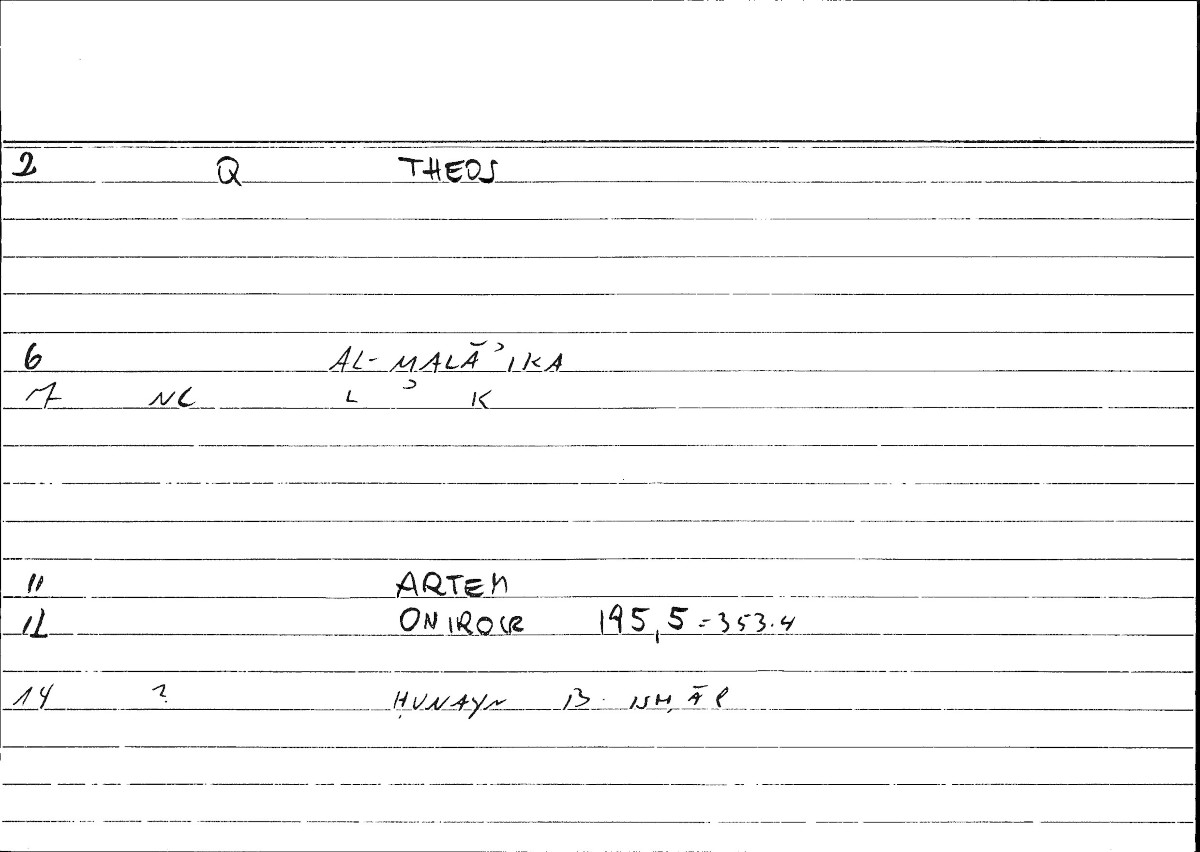 2 Q THEOS
6 AL-MALĀʾIKA
7 NC L ʾ K
11 ARTEM
12 ONIROCR 195,5 = 353.4
14 ? ḤUNAYN B. ISḤĀQ